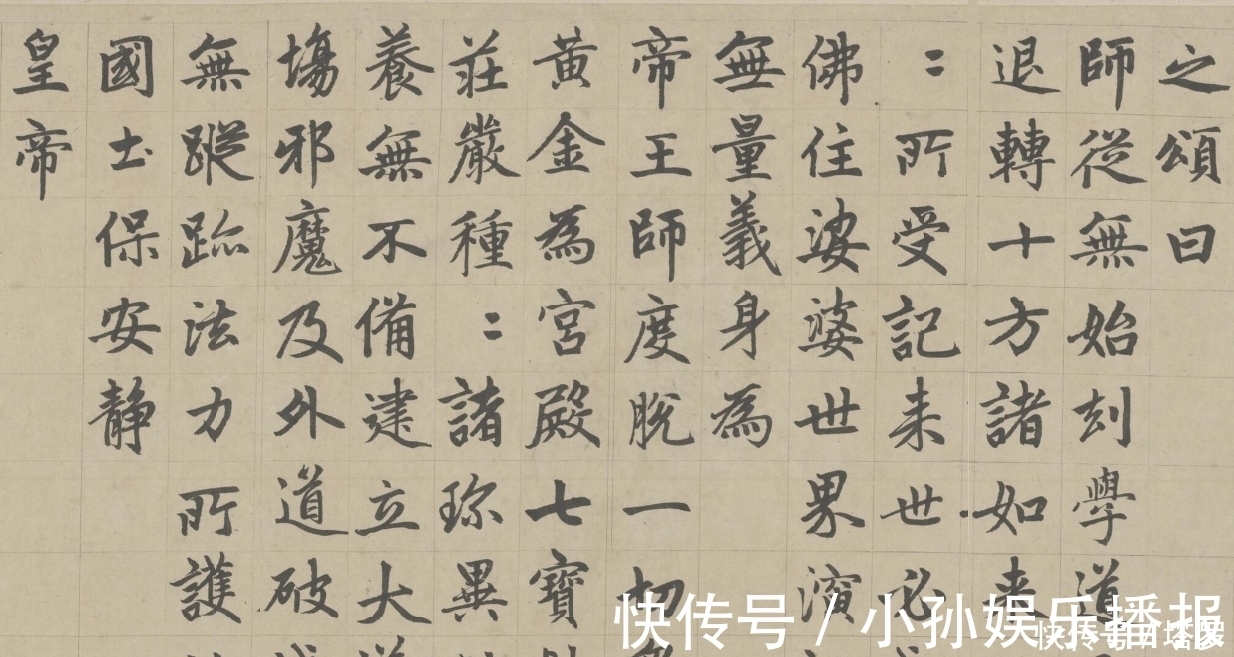 之頌曰
師從無始刧學道
退轉十方諸如来
〻所受記来世必
佛住娑婆世界演
無量義身為
帝王師度脱一切
黄金為宮殿七寶
莊嚴種〻諸珎異
養無不備建立大
塲邪魔及外道破
無蹤跡法力所護
國土保安静
皇帝
快传号 / 小孙娱乐播报
快传号